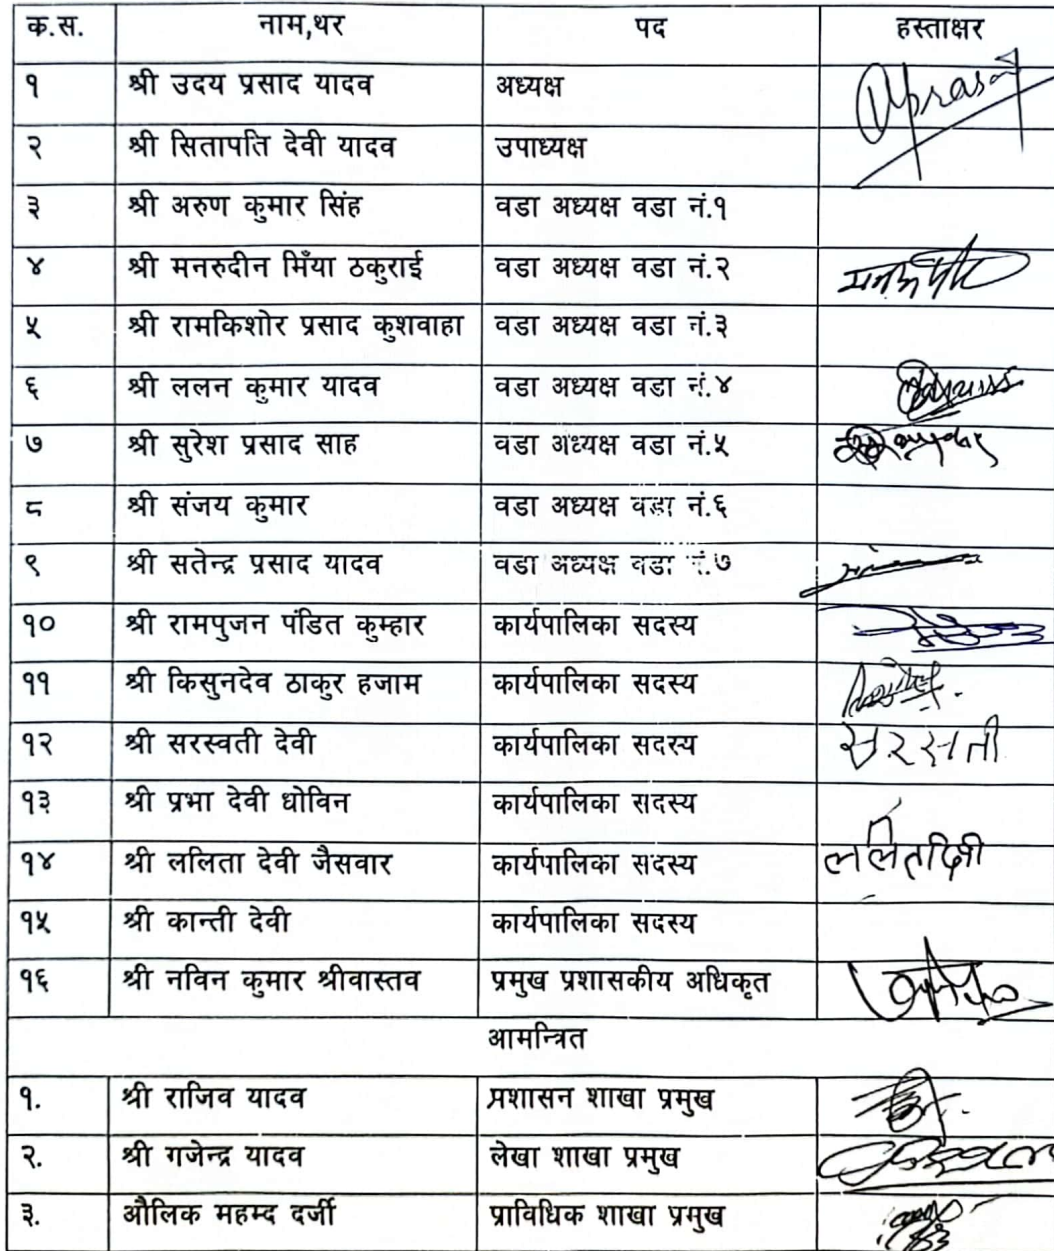 क.स. नाम,थर पद हस्ताक्षर
१ श्री उदय प्रसाद यादव अध्यक्ष
२ श्री सितापति देवी यादव उपाध्यक्ष
३ श्री अरुण कुमार सिंह वडा अध्यक्ष वडा नं.१
४ श्री मनरुदीन मिँया ठकुराई वडा अध्यक्ष वडा नं.२
५ श्री रामकिशोर प्रसाद कुशवाहा वडा अध्यक्ष वडा नं.३
६ श्री ललन कुमार यादव वडा अध्यक्ष वडा नं.४
७ श्री सुरेश प्रसाद साह वडा अध्यक्ष वडा नं.५
८ श्री संजय कुमार वडा अध्यक्ष वडा नं.६
९ श्री सतेन्द्र प्रसाद यादव वडा अध्यक्ष वडा नं.७
१० श्री रामपुजन पंडित कुम्हार कार्यपालिका सदस्य
११ श्री किसुनदेव ठाकुर हजाम कार्यपालिका सदस्य
१२ श्री सरस्वती देवी कार्यपालिका सदस्य सरसती
१३ श्री प्रभा देवी धोविन कार्यपालिका सदस्य
१४ श्री ललिता देवी जैसवार कार्यपालिका सदस्य
१५ श्री कान्ती देवी कार्यपालिका सदस्य
१६ श्री नविन कुमार श्रीवास्तव प्रमुख प्रशासकीय अधिकृत
आमन्त्रित
१. श्री राजिव यादव प्रशासन शाखा प्रमुख
२. श्री गजेन्द्र यादव लेखा शाखा प्रमुख
३. औलिक महम्द दर्जी प्राविधिक शाखा प्रमुख